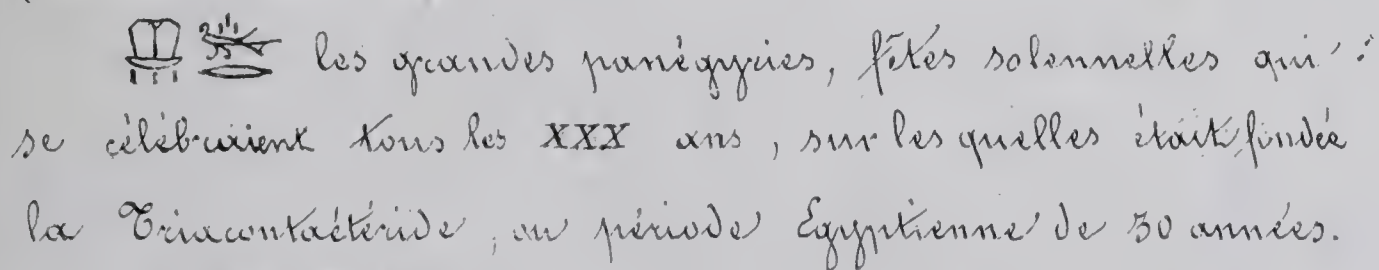 les grandes panégyries, fêtes solennelles qui
se célébraient tous les XXX ans, sur les quelles était fondée
la Triacontaétéride, ou période Egyptienne de 30 années.